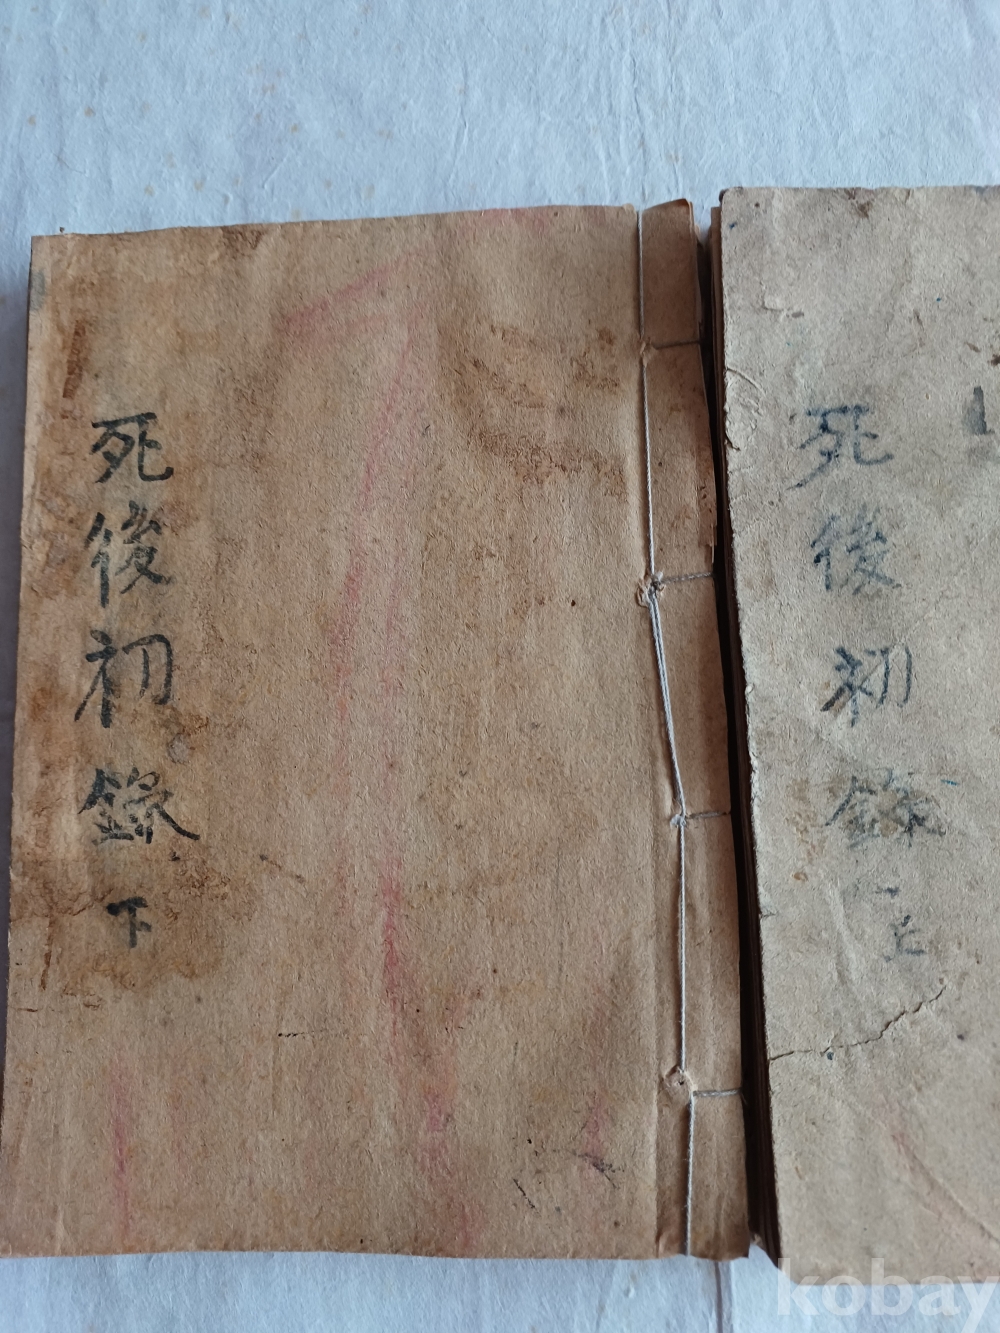 死後初錄 上
死後初錄 下
kobay